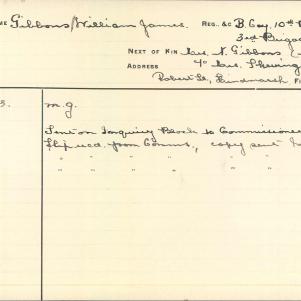 ME Gibbons, William James. REG. &C B Coy. 10th B
3rd Brigad
NEXT OF KIN Mrs. N. Gibbons
ADDRESS C/o Mrs.
Robert St., Hindmarsh
3. M. G.
Sent on Inquiry to Commissione
Slip recd. from Comms., copy sent
" " " " "
" " " " "